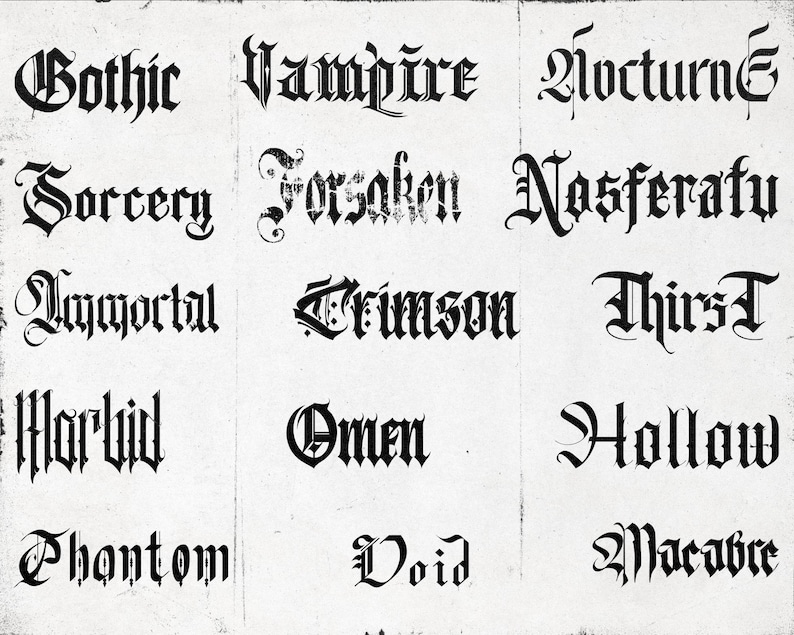 Gothic Vampire NocturnE
Sorcery Forsaken Nosferatu
Immortal Crimson ThirsT
Morbid Omen Hollow
Phantom Void Macabre